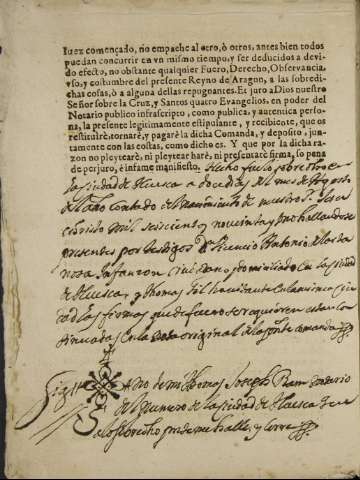 Iuez començado, no empache al otro, ò otros, antes bien todos
puedan concurrir en vn mismo tiempo, y ser deducidos a devi-
do efecto, no obstante qualquier Fuero, Derecho, Observancia,
vso, y costumbre del presente Reyno de Aragon, a las sobredi-
chas cosas, ò a alguna dellas repugnantes. Et juro a Dios nuestro
Señor sobre la Cruz, y Santos quatro Evangelios, en poder del
Notario publico infrascripto, como publica, y autentica perso-
na, la presente legitimamente estipulante, y recibiente, que os
restituirè, tornarè, y pagarè la dicha Comanda, y deposito, jun-
tamente con las costas, como dicho es. Y que por la dicha ra-
zon no pleytearè, ni pleytear harè, ni presentarè firma, so pena
de perjuro, è infame manifiesto. Hecho fue lo sobredicho en
la Ciudad de Huesca a doce dias del mes de Agosto
del año Contado del Nacimiento de nuestro Sr Jesu
christo Mil seiscientos y noventa y ocho hallandose
presentes por testigos Dn Vicencio Antonio de Lasta
nosa Infanzon Ciudadano y domiciliado en la Ciudad
de Huesca, y Thomas Gil havitante en la misma Ciu
dad las firmas que de fuero se requieren estan con
tinuadas en la nota original de la presente comanda
Sig no de mi Thomas Joseph Ram Notario
del Numero de la Ciudad de Huesca que
a lo sobredicho presente me halle, y cerre